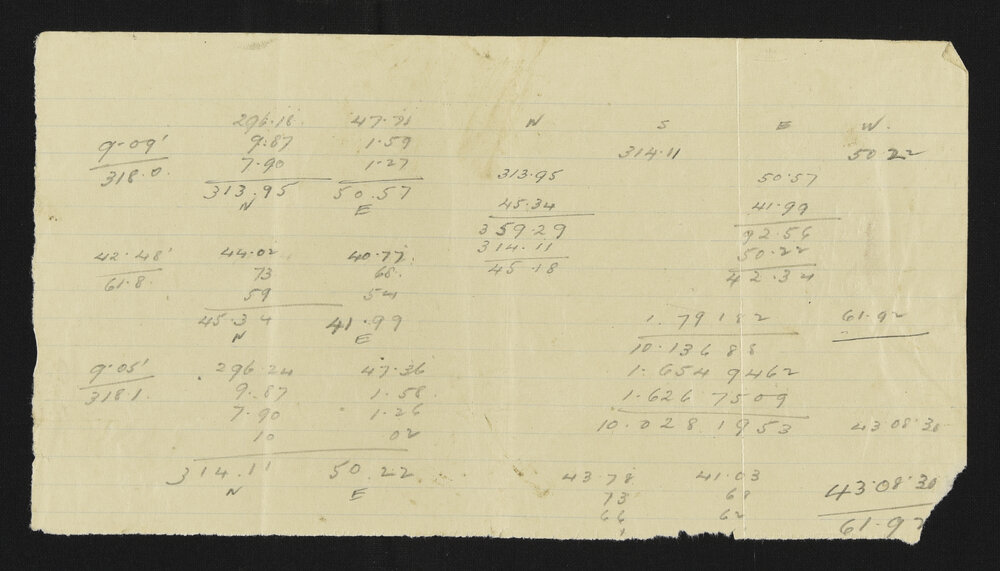 296.18 47.71 N S E W.
9.09' 9.87 1.59 314.11 50 22
318.0. 7.90 1.27 313.95 50.57
313.95 50.57 45.34 41.99
N E 359.29 92.56
42.48' 44.02 40.77. 314.11 50.22
61.8. 73 68. 45.18 42.34
59 54
45.34 41.99 1.79182 61.92
N E 10.13688
9.05' 296.24 47.36 1.6549462
318.1. 9.87 1.58. 1.6267509
7.90 1.26 10.0281953 43 08.30
10 02
314.11 50.22. 43.78 41.03 43.08.30
N E 73 68 61.92
66 62